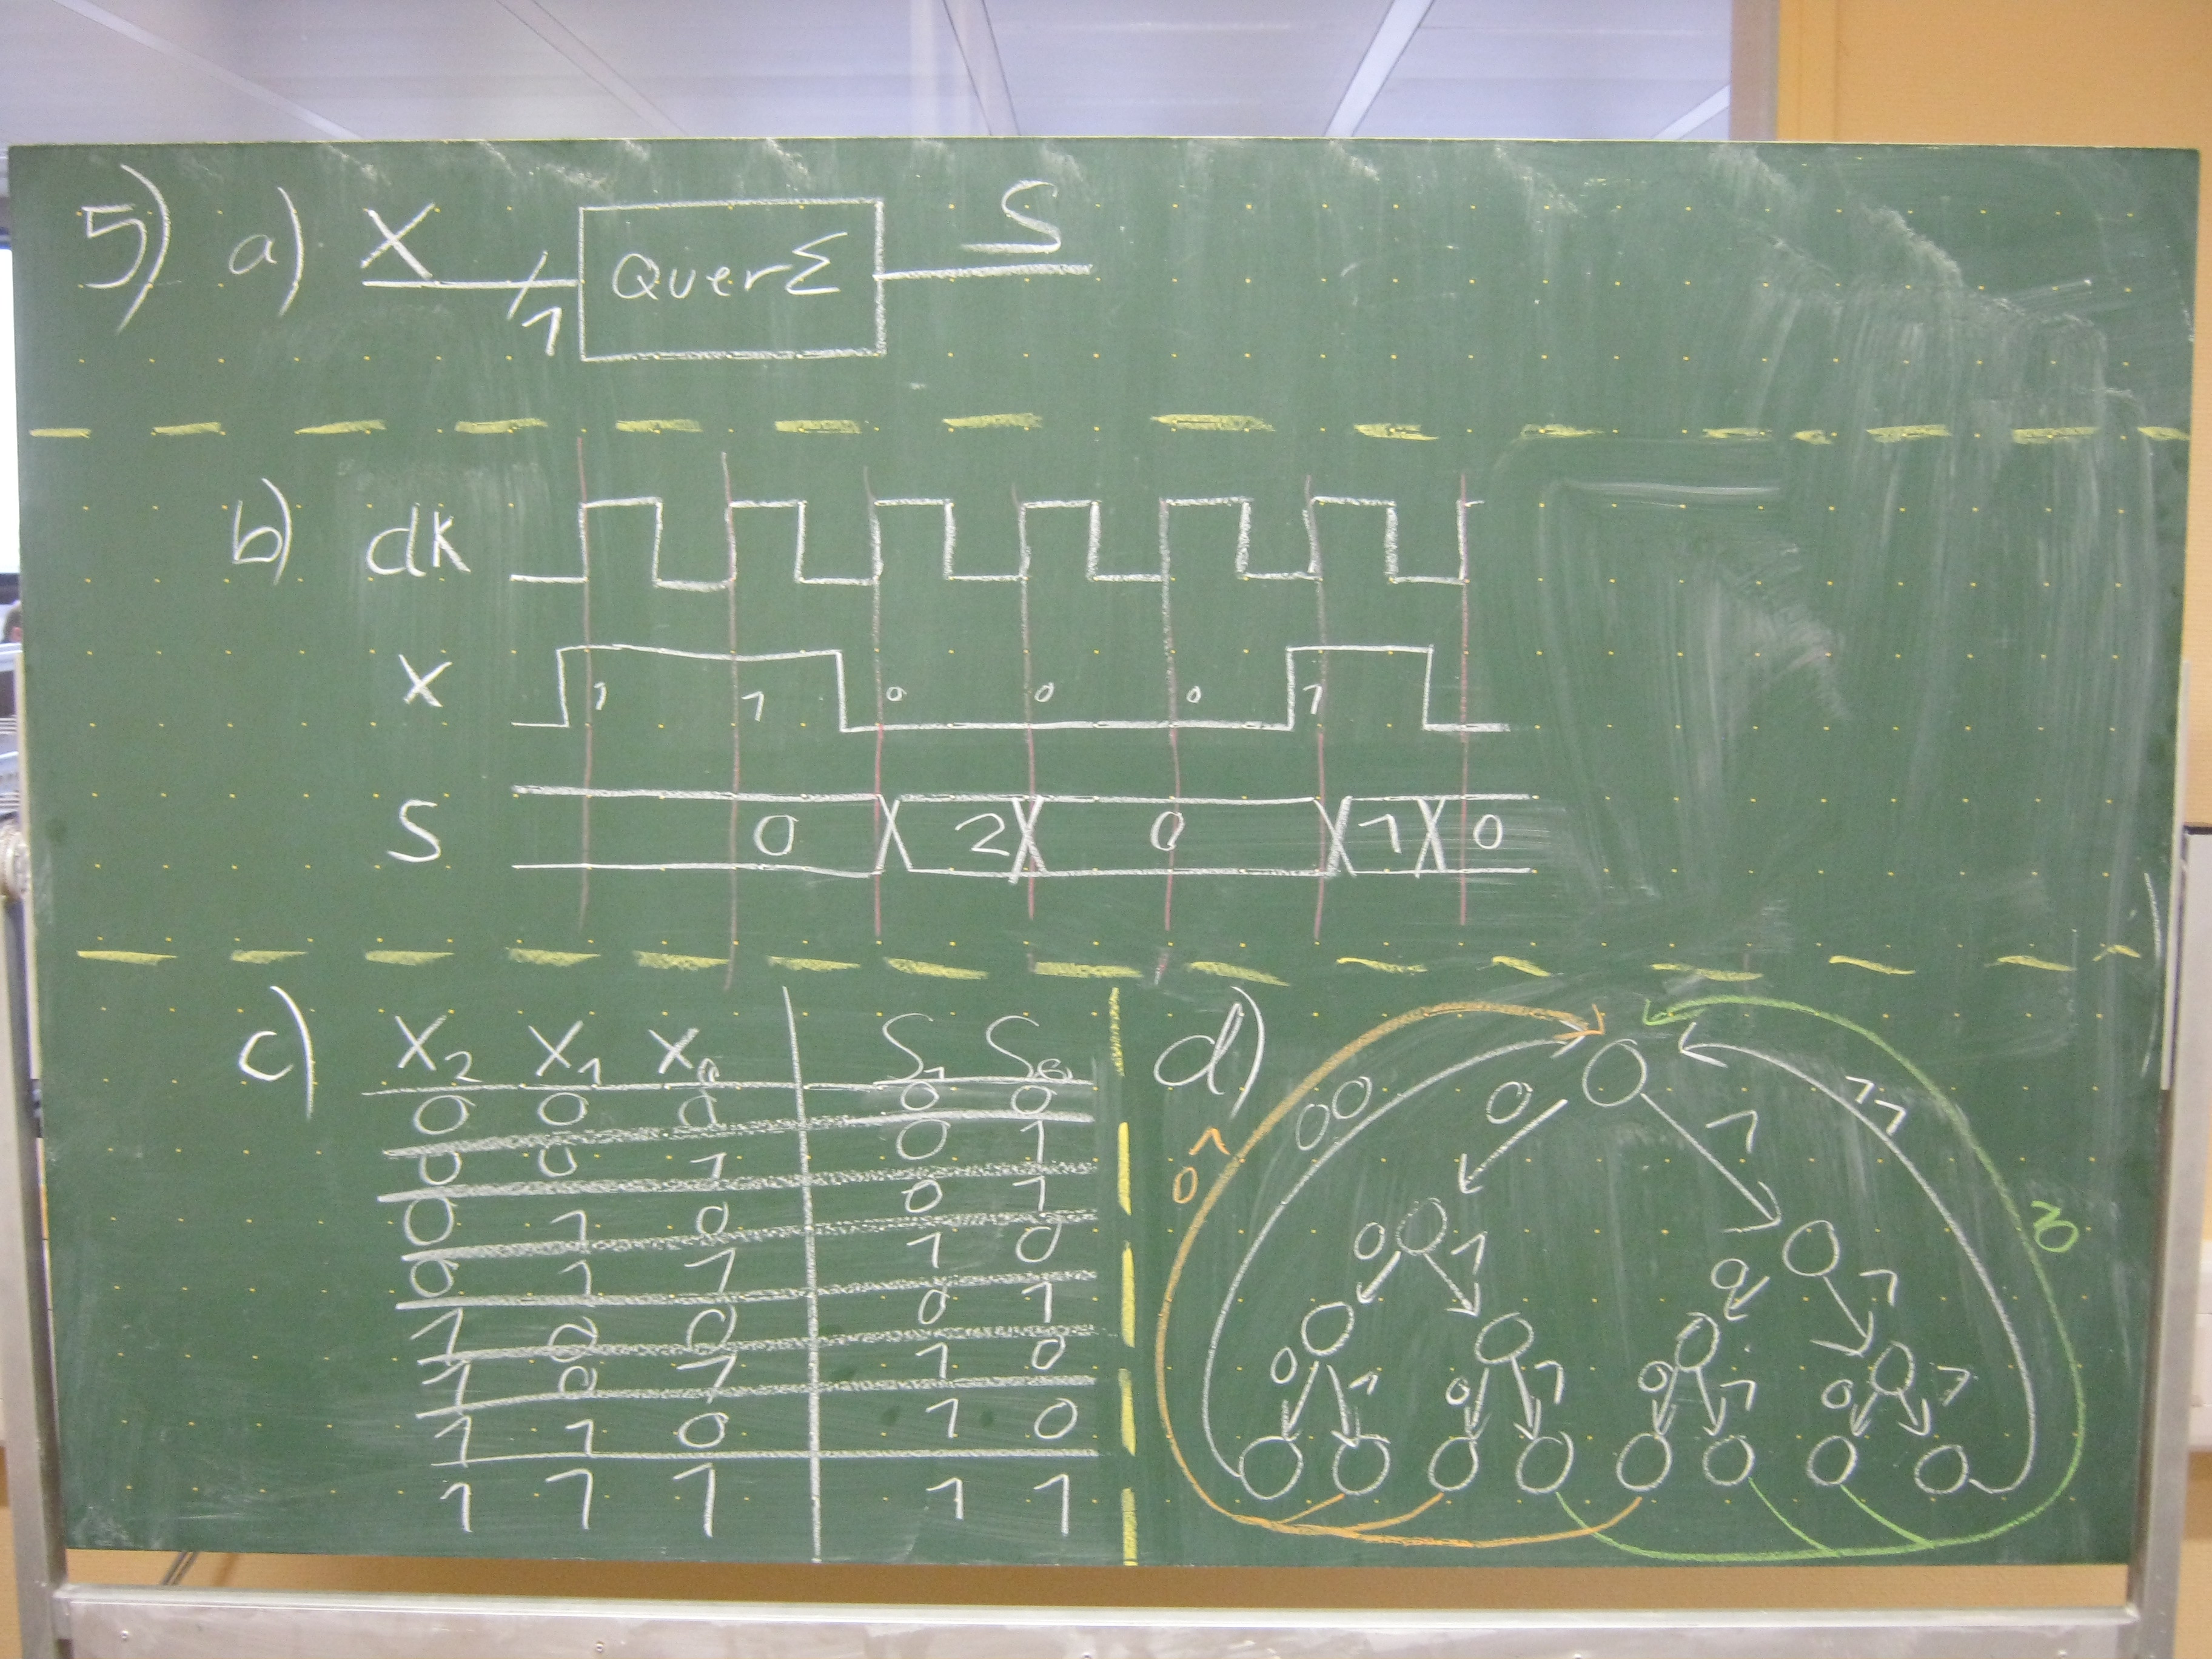 5) a) X 1 QuerΣ S
b) clk
X 1 1 0 0 0 1
S 0 2 0 1 0
c) X2 X1 X0 S1 S0
0 0 0 0 0
0 0 1 0 1
0 1 0 0 1
0 1 1 1 0
1 0 0 0 1
1 0 1 1 0
1 1 0 1 0
1 1 1 1 1
d)
00 0 1 11
01 10
0 1 0 1
0 1 0 1 0 1 0 1